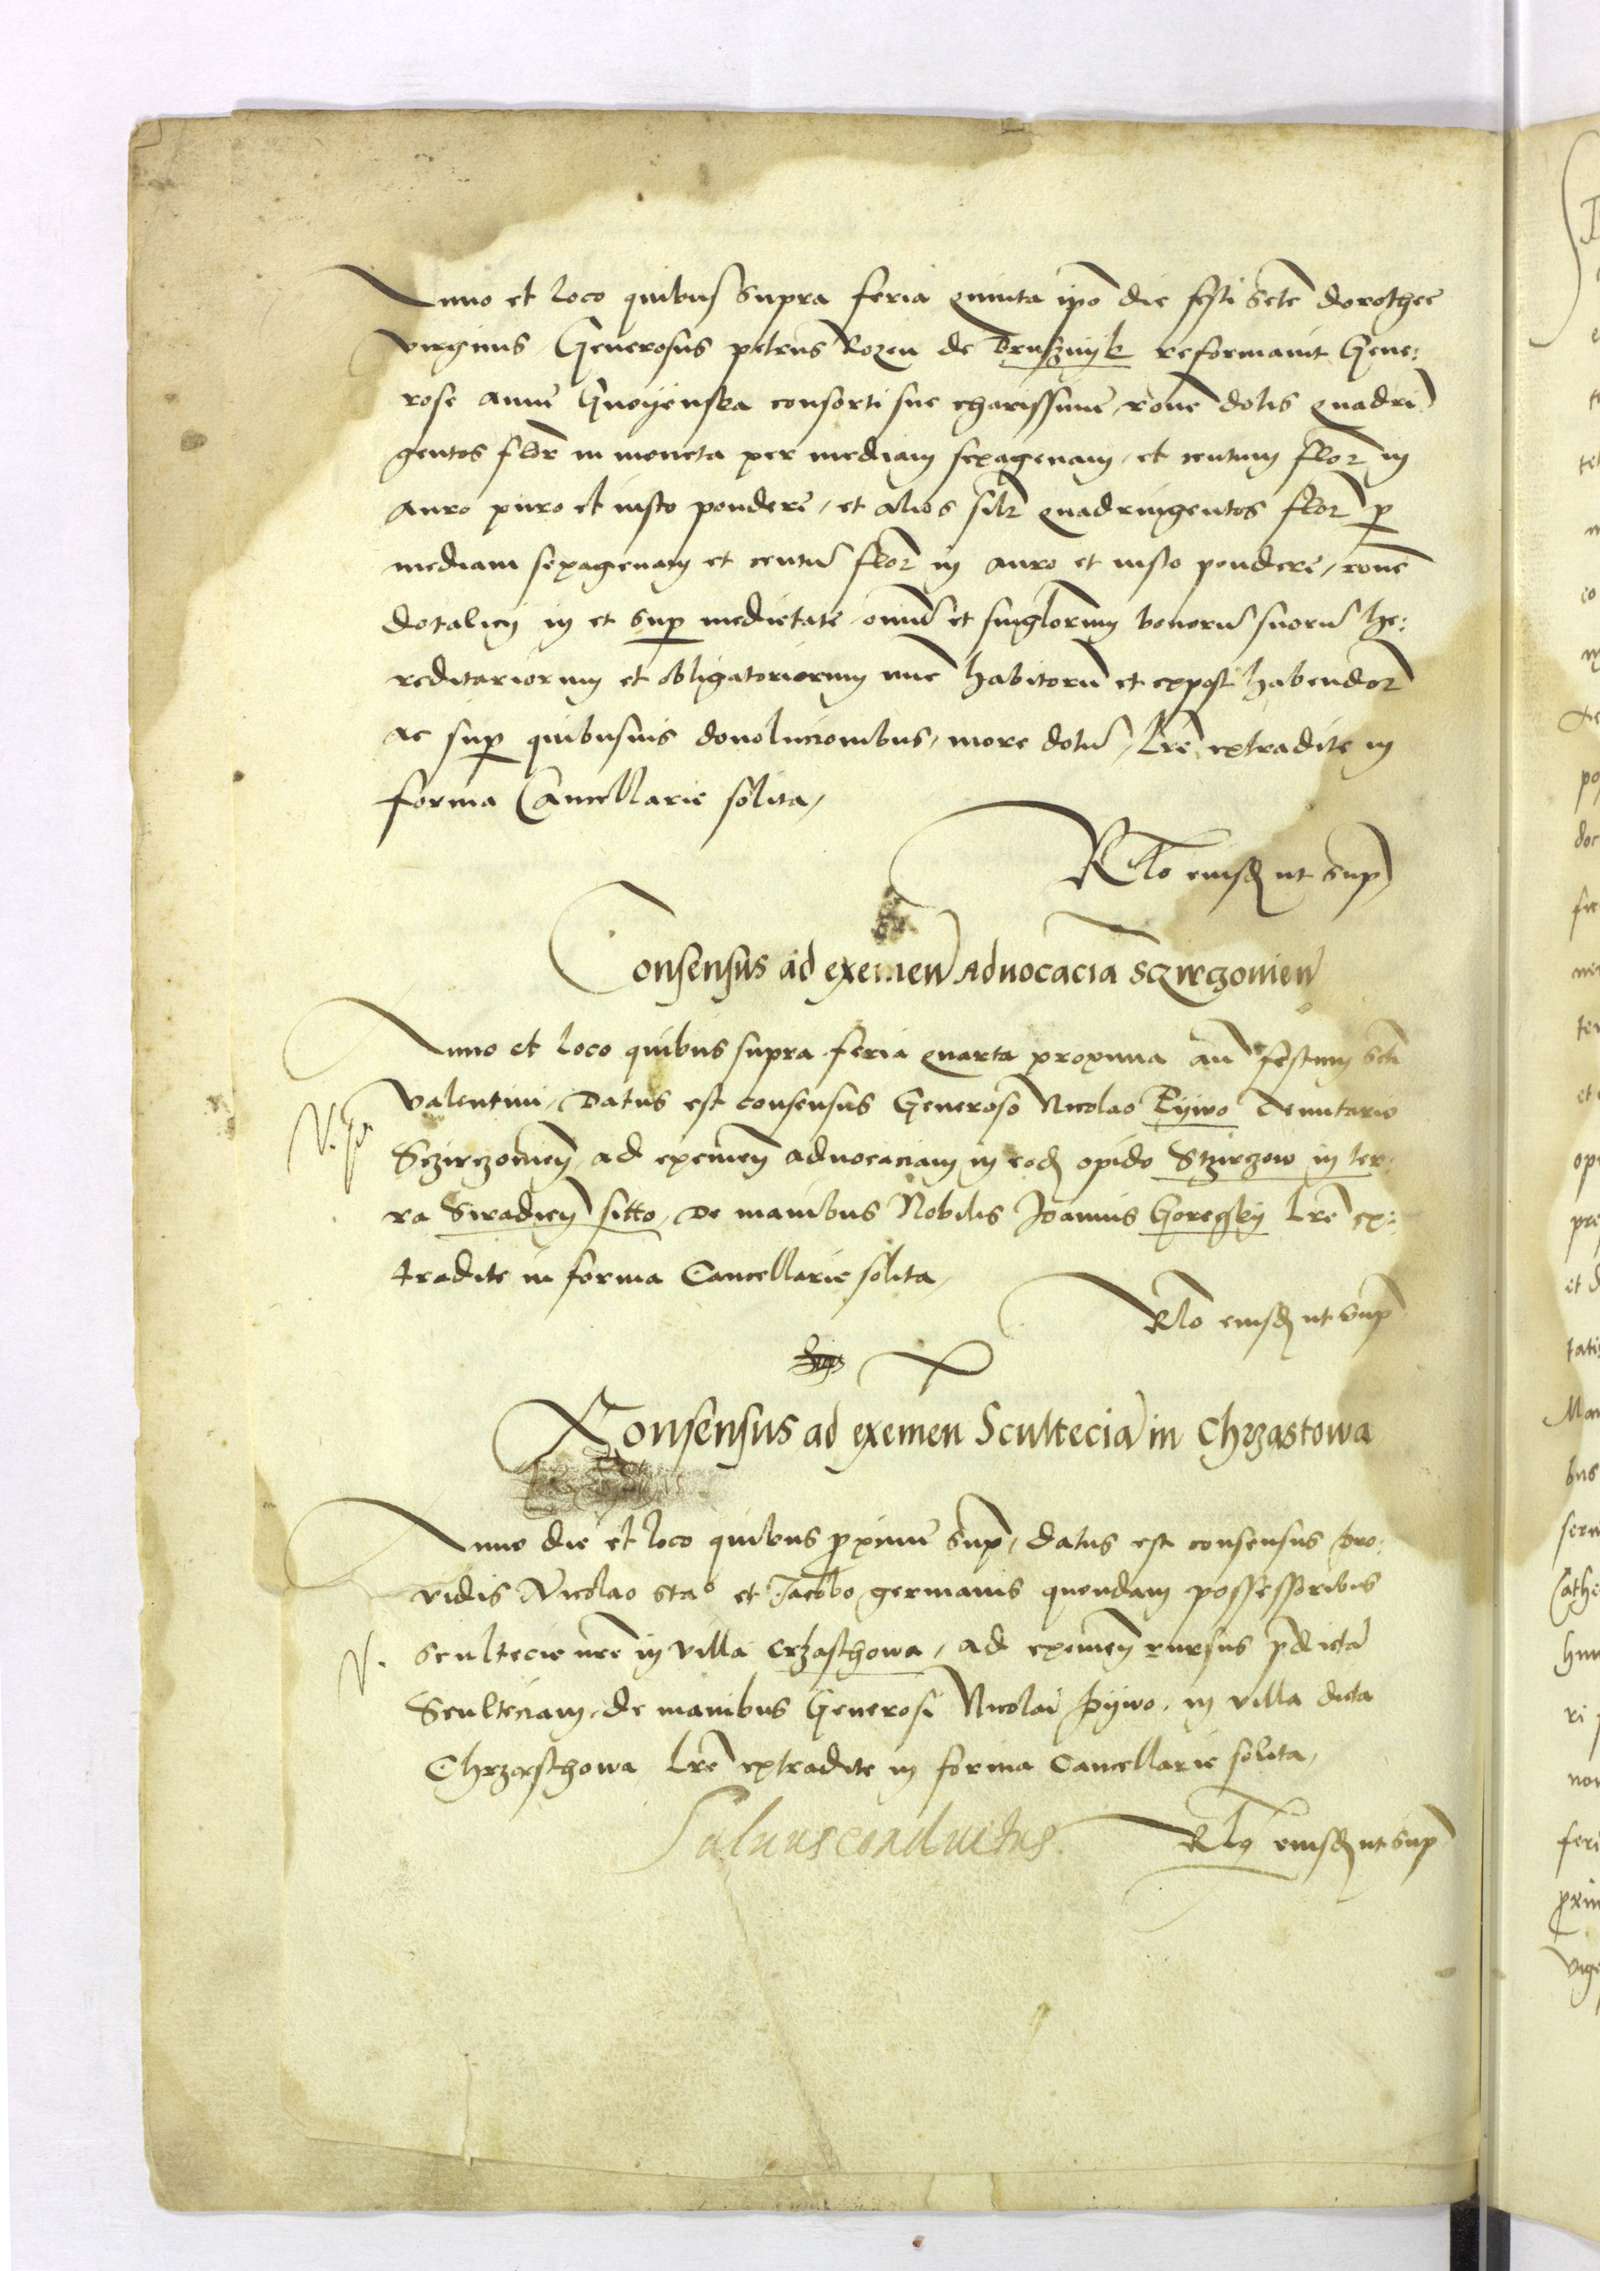 Anno et loco quibus supra feria quinta ipo die festi scte dorothee
virginis Generosus petrus Rozen de Bruszuyk reformavit Gene:
rose anne Gnoyenska consorti sue charissime rone dotis quadri
gentos flor in moneta per mediam sexagenam, et centum flor in
auro puro et iusto pondere, et alios silr quadringentos flor p
mediam sexagenam et centu flor in auro et iusto pondere, rone
dotalicij in et sup medietate omiu et singlorum bonoru suoru he:
reditariorum et obligatoriorum nunc habitoru et expost habendor
ac sup quibusuis deuolucionibus, more dotu, lre extradite in
forma Cancellarie solita,
Rlo eiusd ut sup
Consensus ad exemen aduocacia Sczirczouien
Anno et loco quibus supra feria quarta proxima an festum scti
valentini, Datus est consensus Generoso Nicolao Pywo Tenutario
Sczirczouien, ad exemen aduocaciam in eod opido Stzirczow in ter:
ra Siradien sitto, de manibus Nobilis Joannis Goreczky lre ex:
tradite in forma Cancellarie solita,
Rlo eiusd ut sup
Consensus ad exemen Scultecia in Chrzastowa
Anno die et loco quibus proxime sup, datus est consensus pro:
vidis Nicolao Stao et Jacobo germanis quondam possessoribus
scultecie nre in villa Crzasthowa, ad exemen rursus pdicta
Sculteciam, de manibus Generosi Nicolai Pywo, in villa dicta
Chrzasthowa lre extradite in forma Cancellarie solita,
Saluus conductus.
Rlo eiusd ut sup